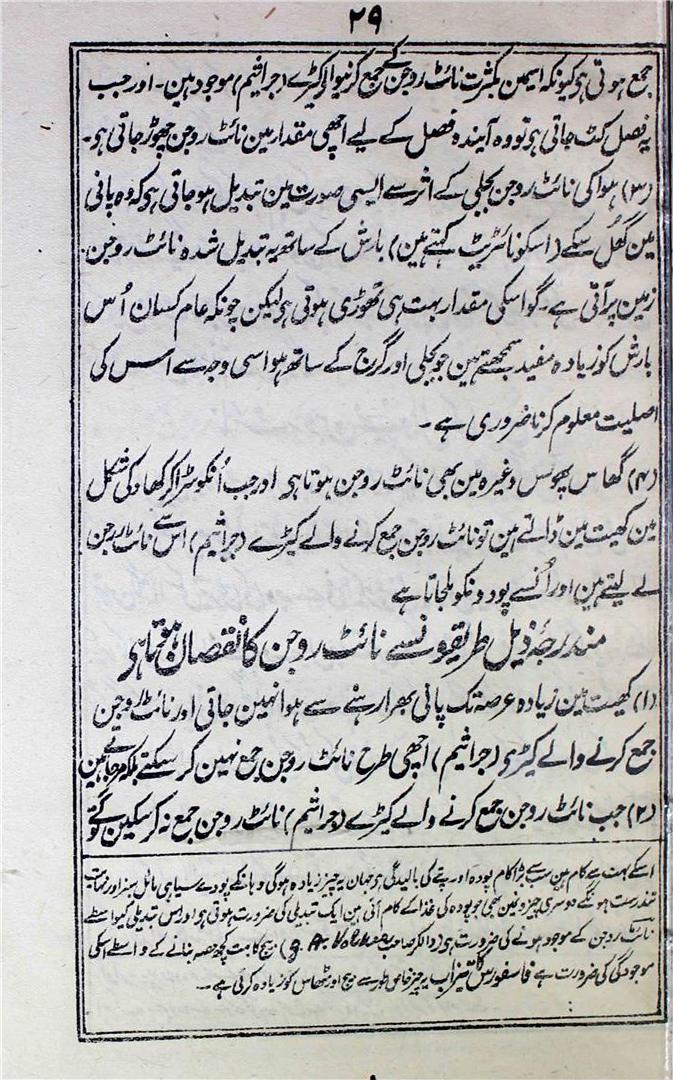 ۲۹
جمع ہوتی ہی کیونکہ ایمین بکثرت نائٹ روجن کے جمع کرنیوالی کیڑے (جراثیم) موجود ہین۔ اور جب
یہ فصل کٹ جاتی ہی تو وہ آیندہ فصل کے لیے اچھی مقدار مین نائٹ روجن چھوڑ جاتی ہی۔
(۳) ہوا کی نائٹ روجن بجلی کے اثر سے ایسی صورت مین تبدیل ہو جاتی ہی کہ وہ پانی
مین گھُل سکے (اسکو نائٹریٹ کہتے ہین) بارش کے ساتھ یہ تبدیل شدہ نائٹ روجن
زمین پر آتی ہے۔ گو اسکی مقدار بہت ہی تھوڑی ہوتی ہی لیکن چونکہ عام کسان اُس
بارش کو زیادہ مفید سمجھتے ہین جو بجلی اور گرج کے ساتھ ہو اسی وجہ سے اس کی
اصلیت معلوم کرنا ضروری ہے۔
(۴) گھاس پھونس وغیرہ مین بھی نائٹ روجن ہوتا ہی اور جب اُنکو سڑا کر کھاد کی شکل
مین کھیت مین ڈالتے ہین تو نائٹ روجن جمع کرنے والے کیڑے (جراثیم) اس سے نائٹ روجن
لے لیتے ہین اور اُنسے پودونکو ملجاتا ہے
مندرجۂ ذیل طریقونسے نائٹ روجن کا نقصان ہوتا ہی
(۱) کھیت مین زیادہ عرصہ تک پانی بھرا رہنے سے ہوا نہین جاتی اور نائٹ روجن
جمع کرنے والے کیڑی (جراثیم) اچھی طرح نائٹ روجن جمع نہین کر سکتے بلکہ مر جاتے ہین
(۲) جب نائٹ روجن جمع کرنے والے کیڑے (جراثیم) نائٹ روجن جمع نہ کر سکین گے تو
اسکے بہت سے کام ہین سب سے بڑا کام پودہ اور پتے کی بالیدگی ہی جہان یہ چیز زیادہ ہوگی وہانکے پودے سیاہی مائل سبز اور نہایت
تندرست ہونگے دوسری چیزونمین بھی جو پودہ کی غذا کے کام آتی ہین ایک تبدیلی کی ضرورت ہوتی ہی اور اس تبدیلی کیواسطے
نائٹ روجن کے موجود ہونے کی ضرورت ہی (ڈاکٹر صاحب) بیج کا بہت کچھ حصہ بنانے کے واسطے اسکی
موجودگی کی ضرورت ہے فاسفورس کا تیزاب یہ چیز خاص طور سے بیج اور مٹھاس کو زیادہ کرتی ہے۔